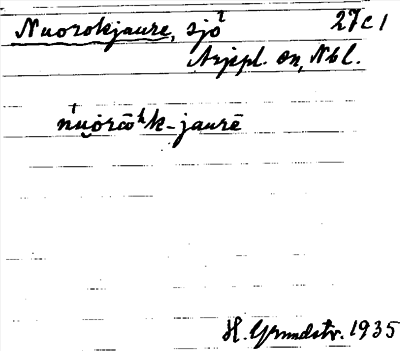 Nuorokjaure, sjö 27c1
Arjepl. sn, Nbl.
nuo̯rō̆ʰk-jaurē
H. Grundstr. 1935